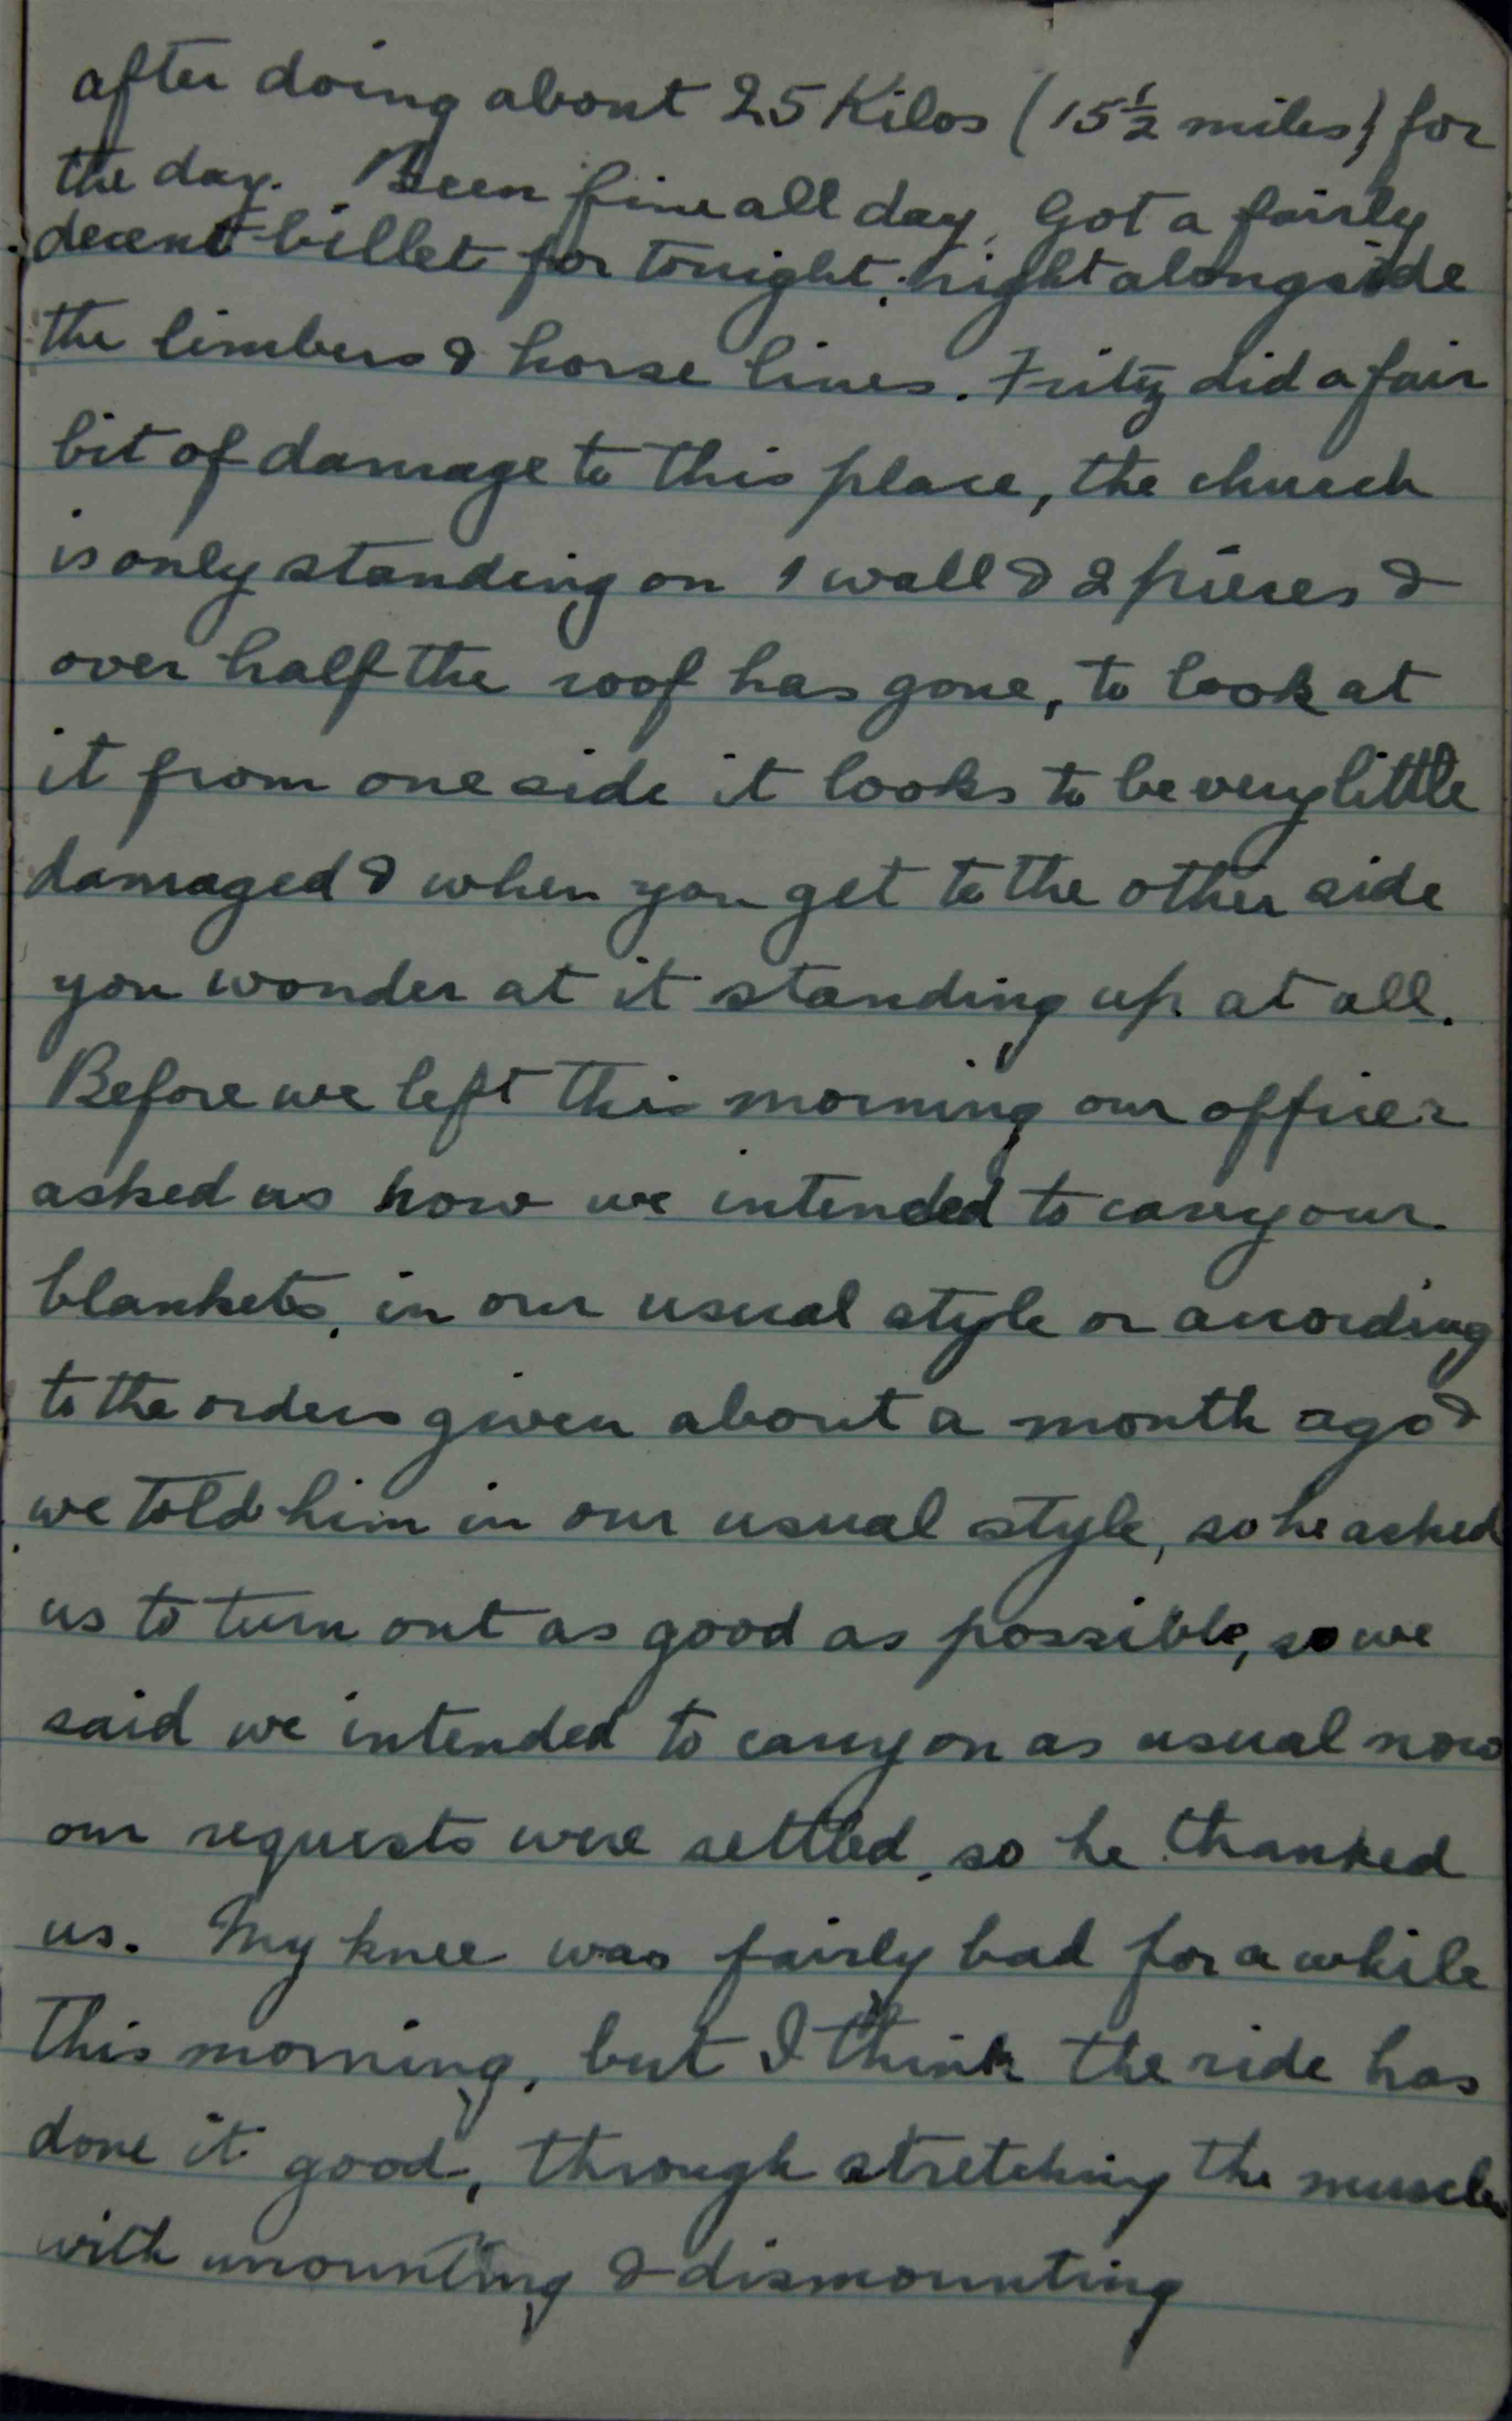 after doing about 25 Kilos (15½ miles) for
the day. Been fine all day. Got a fairly
decent billet for tonight, right alongside
the limbers & horse lines. Fritz did a fair
bit of damage to this place, the church
is only standing on 1 wall & 2 pieces &
over half the roof has gone, to look at
it from one side it looks to be very little
damaged & when you get to the other side
you wonder at it standing up at all.
Before we left this morning our officer
asked us how we intended to carry our
blankets, in our usual style or according
to the orders given about a month ago &
we told him in our usual style, so he asked
us to turn out as good as possible, so we
said we intended to carry on as usual now
our requests were settled, so he thanked
us. My knee was fairly bad for a while
this morning, but I think the ride has
done it good, through stretching the muscles
with mounting & dismounting